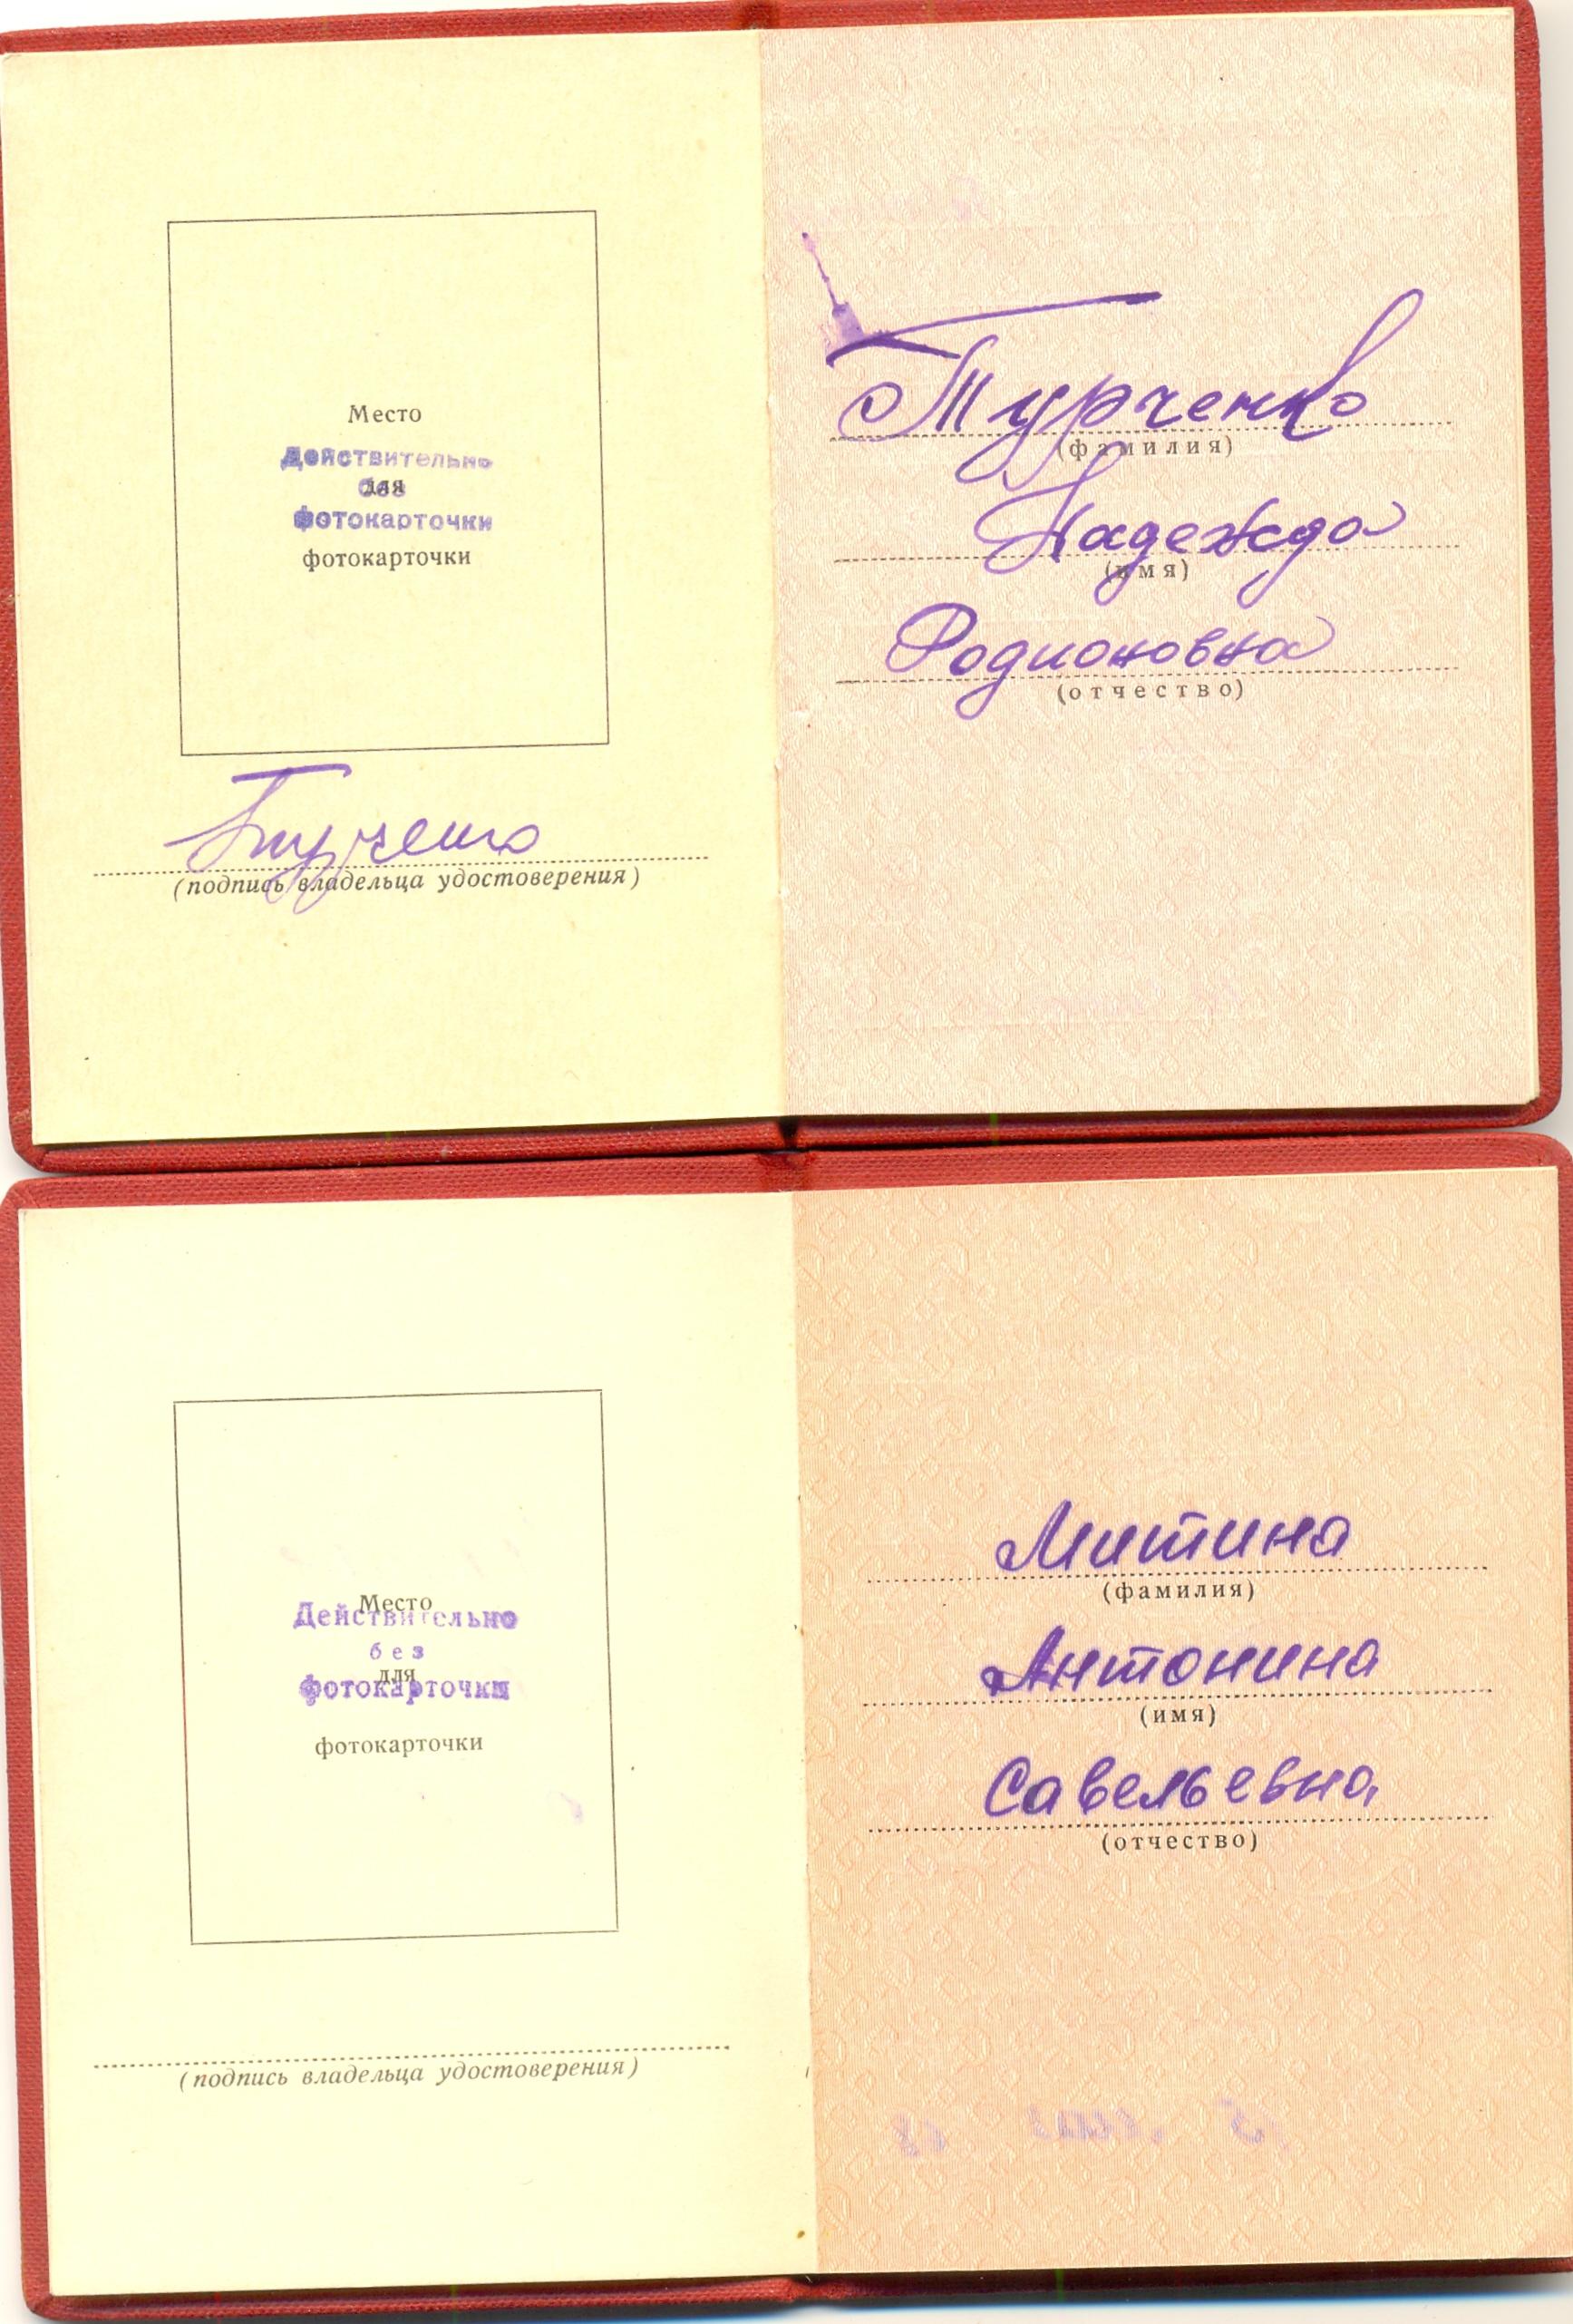 Место
Действительно
для
без
фотокарточки
фотокарточки
Турченко
(подпись владельца удостоверения)
Турченко
(фамилия)
Надежда
(имя)
Родионовна
(отчество)
Место
Действительно
без
для
фотокарточки
фотокарточки
(подпись владельца удостоверения)
Митина
(фамилия)
Антонина
(имя)
Савельевна
(отчество)